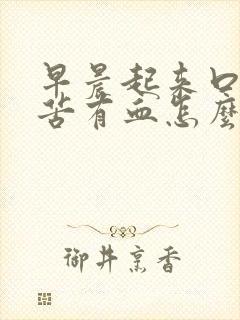 早晨起来口
苦有血怎麼
御井烹香